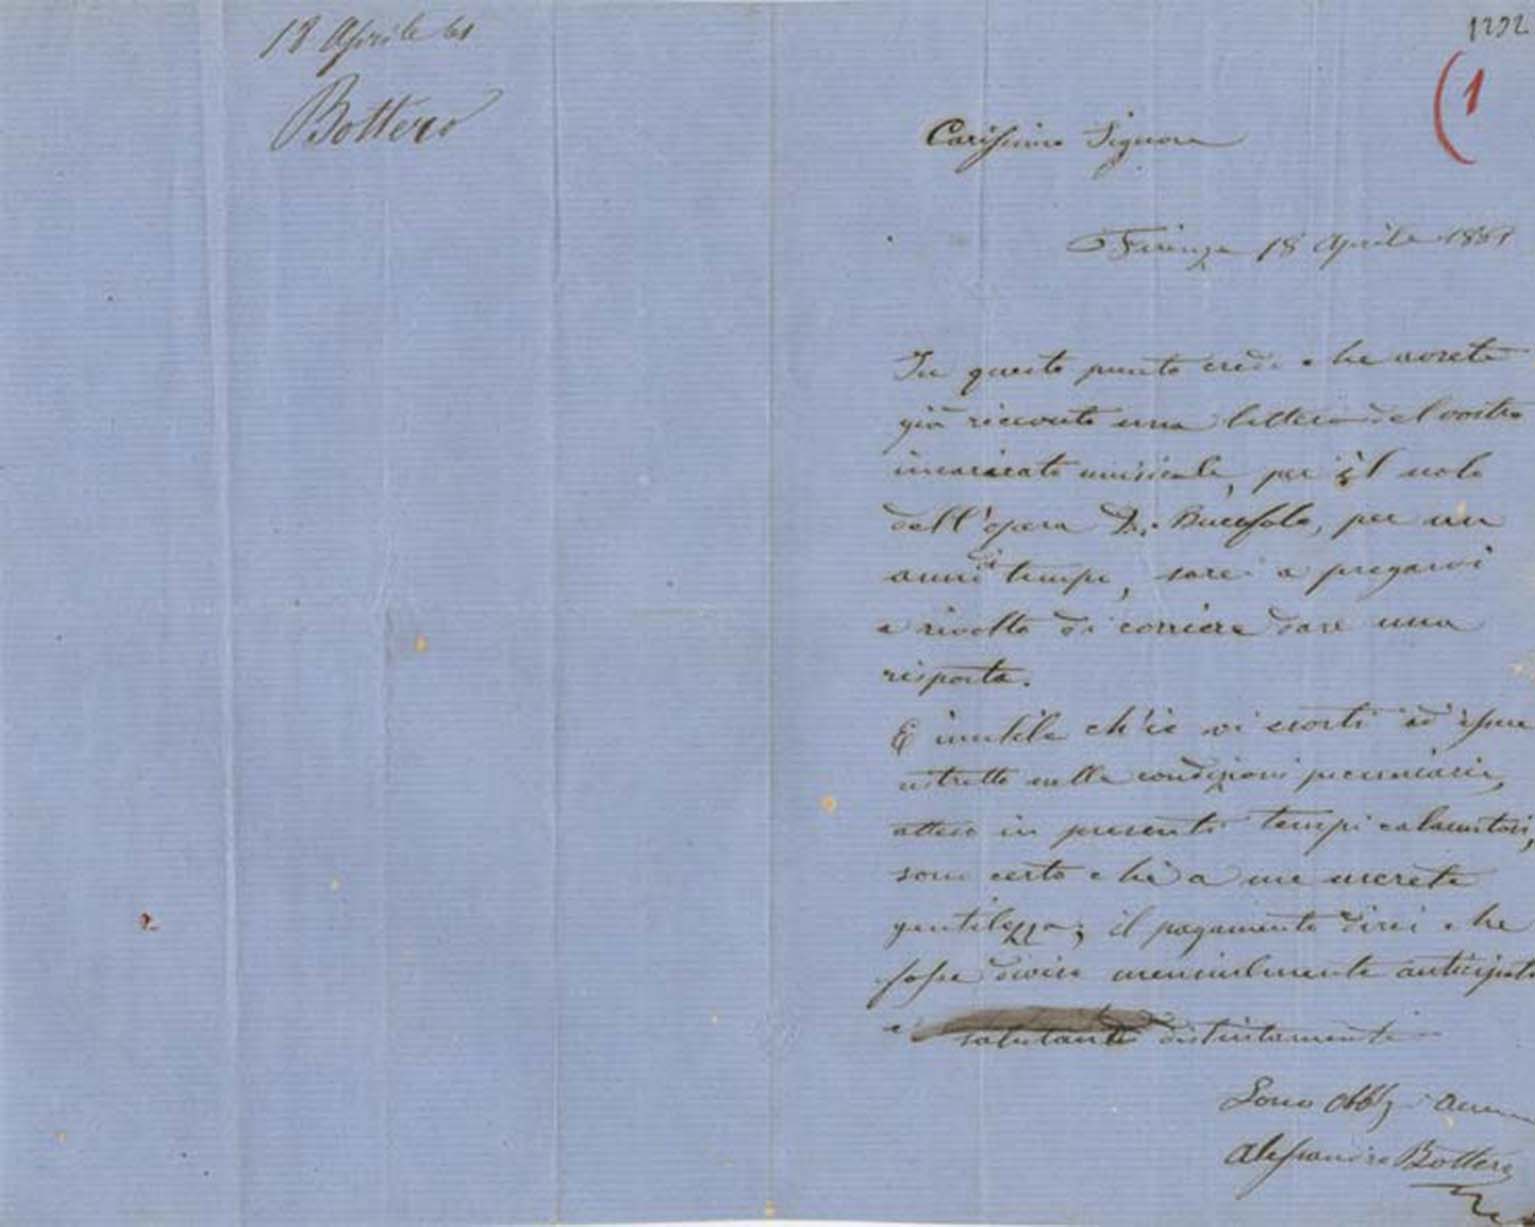 18 Aprile 61
Bottero
1292
1
Carissimo Signore
Firenze 18 Aprile 1861
In questo punto credo che avrete
già ricevuto una lettera del vostro
incaricato musicale, per il nolo
dell'opera D. Bucefalo, per un
anno di tempo, sarei a pregarvi
a rivolta di corriere dare una
risposta.
E inutile ch'io vi esorti ad essere
ristretto nelle condizioni pecuniarie,
atteso in presenti tempi calamitosi,
sono certo che a me userete
gentilezza; il pagamento direi che
fosse diviso mensilmente anticipato
e salutando distintamente
Sono Obbg.
Alessandro Bottero